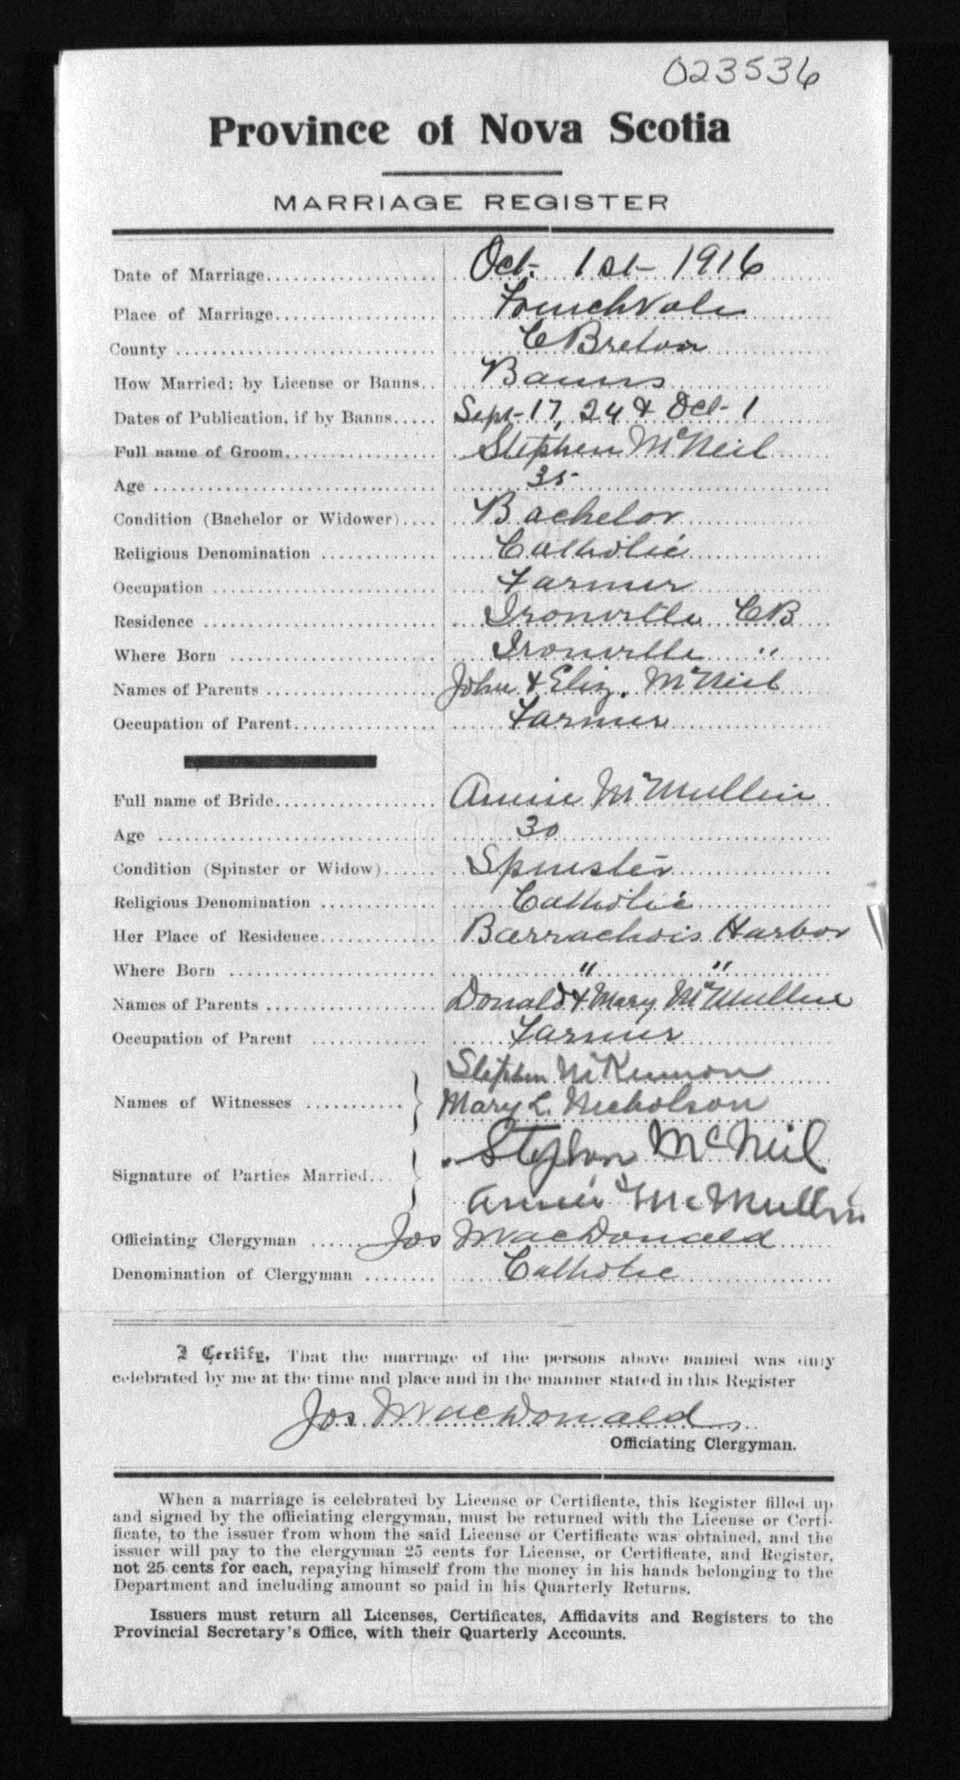 023536
Province of Nova Scotia
MARRIAGE REGISTER
Date of Marriage Oct. 1st 1916
Place of Marriage Frenchvale
County C Breton
How Married: by License or Banns Banns
Dates of Publication, if by Banns Sept 17, 24 & Oct 1
Full name of Groom Stephen McNeil
Age 35
Condition (Bachelor or Widower) Bachelor
Religious Denomination Catholic
Occupation Farmer
Residence Ironville CB
Where Born Ironville "
Names of Parents John & Eliz. McNeil
Occupation of Parent Farmer
Full name of Bride Annie McMullin
Age 30
Condition (Spinster or Widow) Spinster
Religious Denomination Catholic
Her Place of Residence Barrachois Harbor
Where Born " "
Names of Parents Donald & Mary McMullin
Occupation of Parent Farmer
Stephen McKinnon
Names of Witnesses Mary L. Nicholson
Stephen McNeil
Signature of Parties Married
Annie McMullin
Officiating Clergyman Jos MacDonald
Denomination of Clergyman Catholic
I Certify, That the marriage of the persons above named was duly
celebrated by me at the time and place and in the manner stated in this Register
Jos MacDonald
Officiating Clergyman.
When a marriage is celebrated by License or Certificate, this Register filled up
and signed by the officiating clergyman, must be returned with the License or Certi-
ficate, to the issuer from whom the said License or Certificate was obtained, and the
issuer will pay to the clergyman 25 cents for License, or Certificate, and Register,
not 25 cents for each, repaying himself from the money in his hands belonging to the
Department and including amount so paid in his Quarterly Returns.
Issuers must return all Licenses, Certificates, Affidavits and Registers to the
Provincial Secretary's Office, with their Quarterly Accounts.